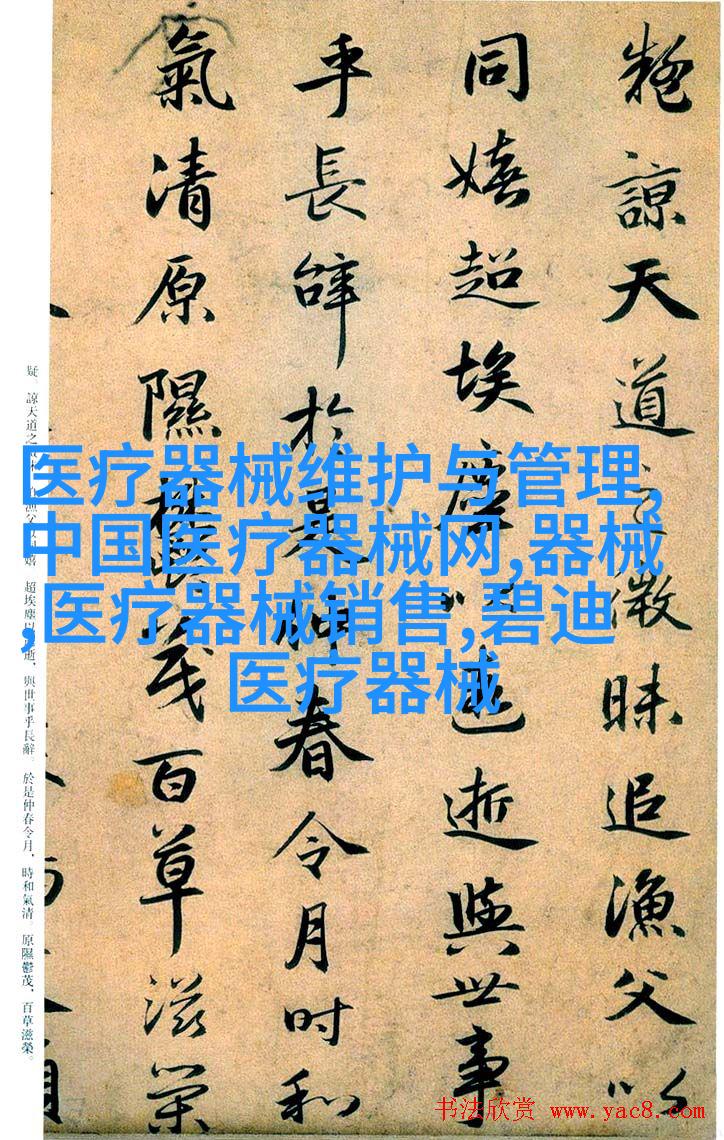 疑諒天道之微昧追漁父以
同嬉超埃塵以遐逝與世事
乎長辭於是仲春令月时和
氣清原隰鬱茂百草滋榮
医疗器械维护与管理,
中国医疗器械网,器械
,医疗器械销售,碧迪
医疗器械
疑。諒天道之微昧，追漁父以同嬉。超埃塵以遐逝，與世事乎長辭。於是仲春令月，時和氣清。原隰鬱茂，百草滋榮。
书法欣赏 www.yac8.com